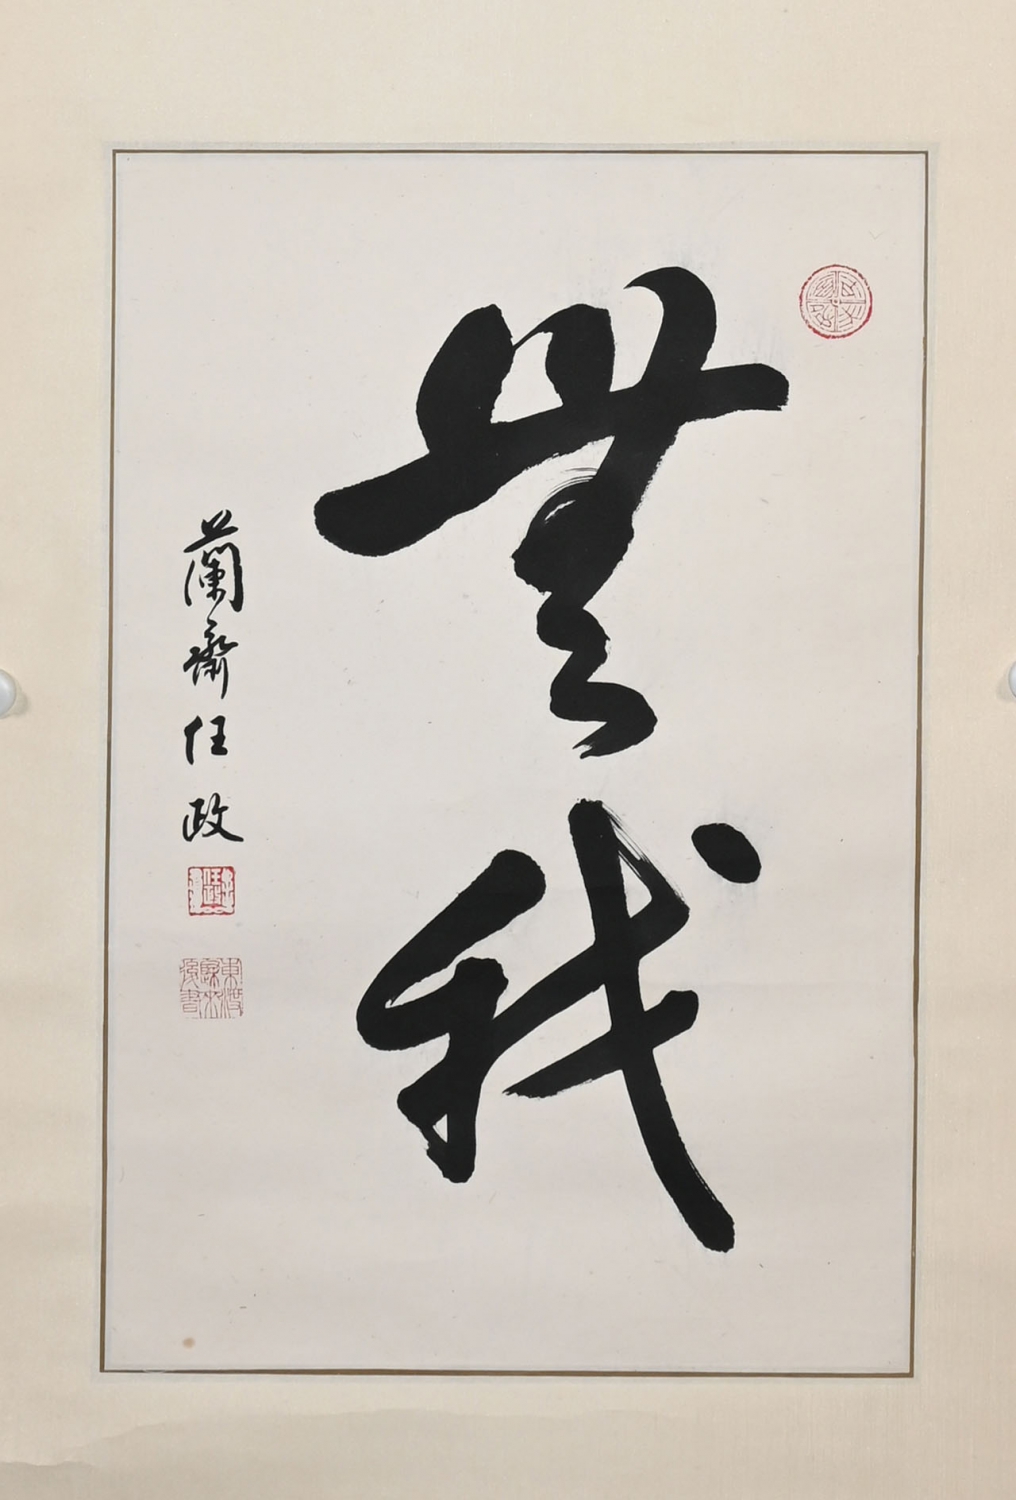 無我
蘭齋任政